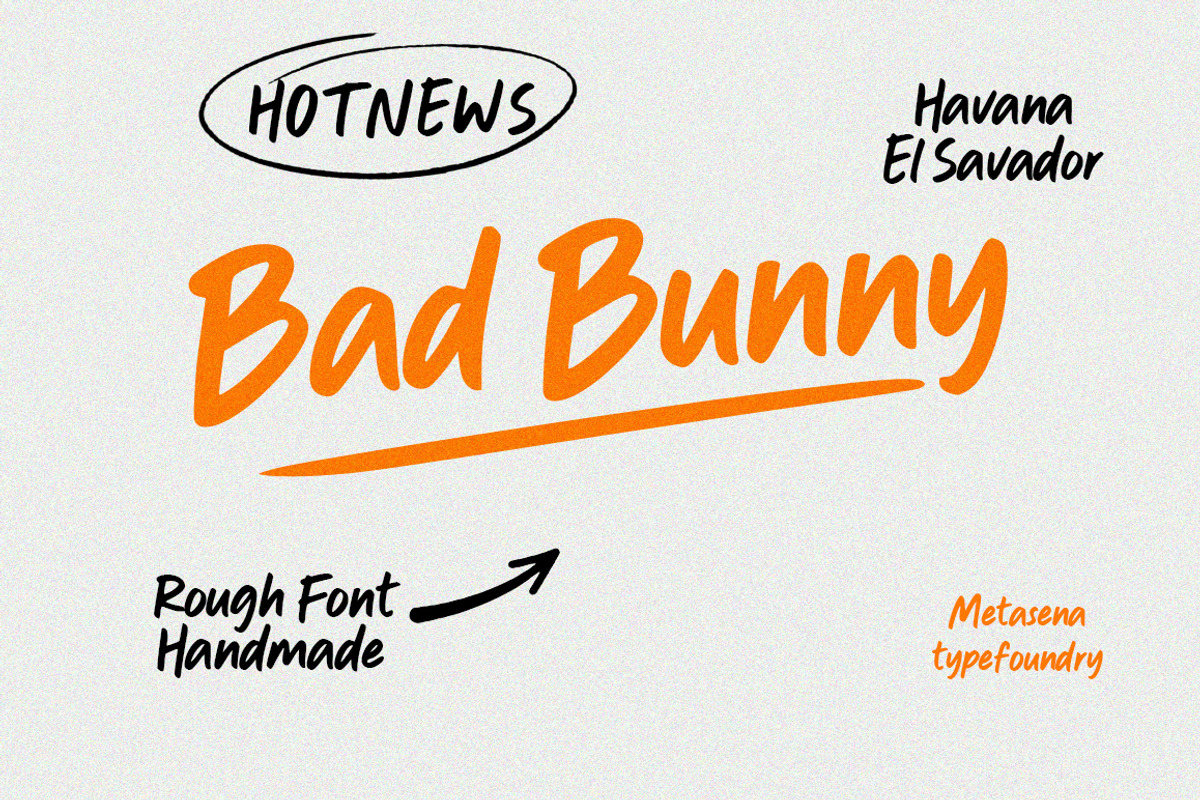 HOTNEWS
Havana
El Savador
Bad Bunny
Rough Font
Handmade
Metasena
typefoundry